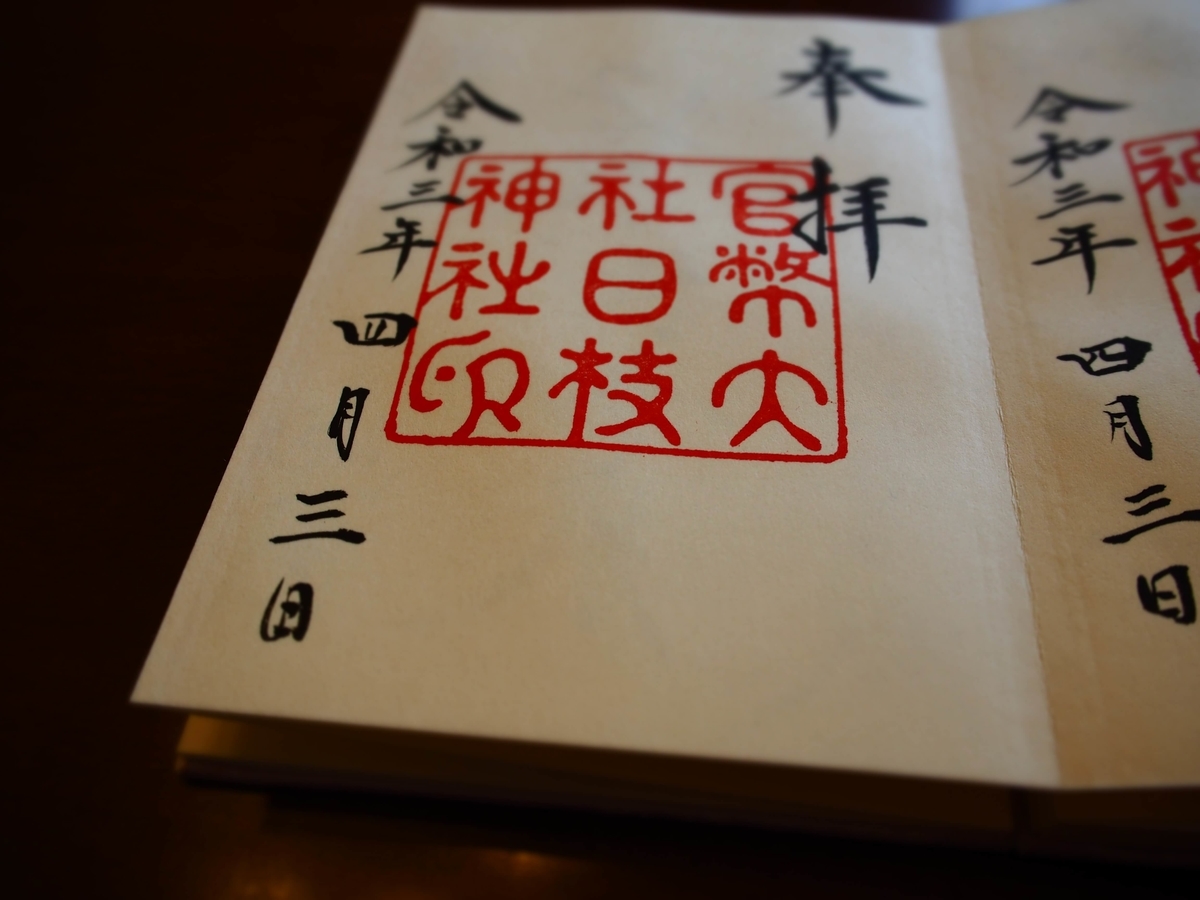 神社
令和三年四月三日
奉拝
官幣大
社日枝
神社印
令和三年四月三日